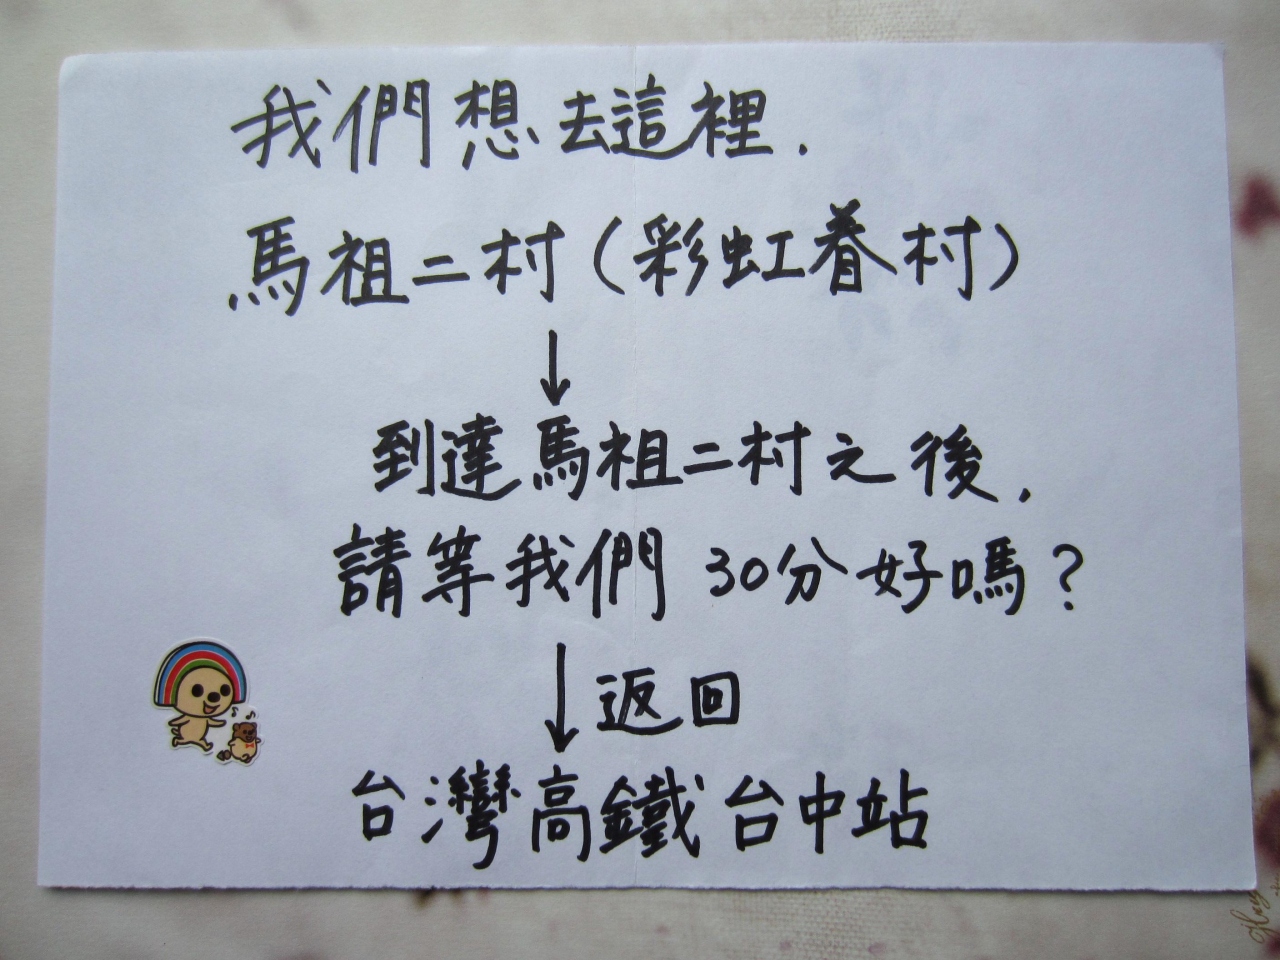 我們想去這裡.
馬祖二村(彩虹眷村)
↓
到達馬祖二村之後.
請等我們 30分好嗎?
↓返回
台灣高鐵台中站